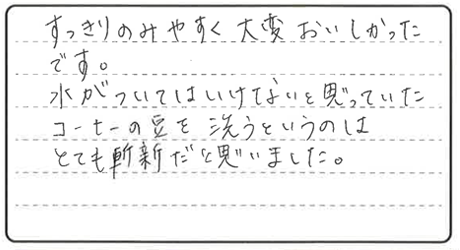 すっきりのみやすく大変おいしかった
です。
水がついてはいけないと思っていた
コーヒーの豆を洗うというのは
とても斬新だと思いました。